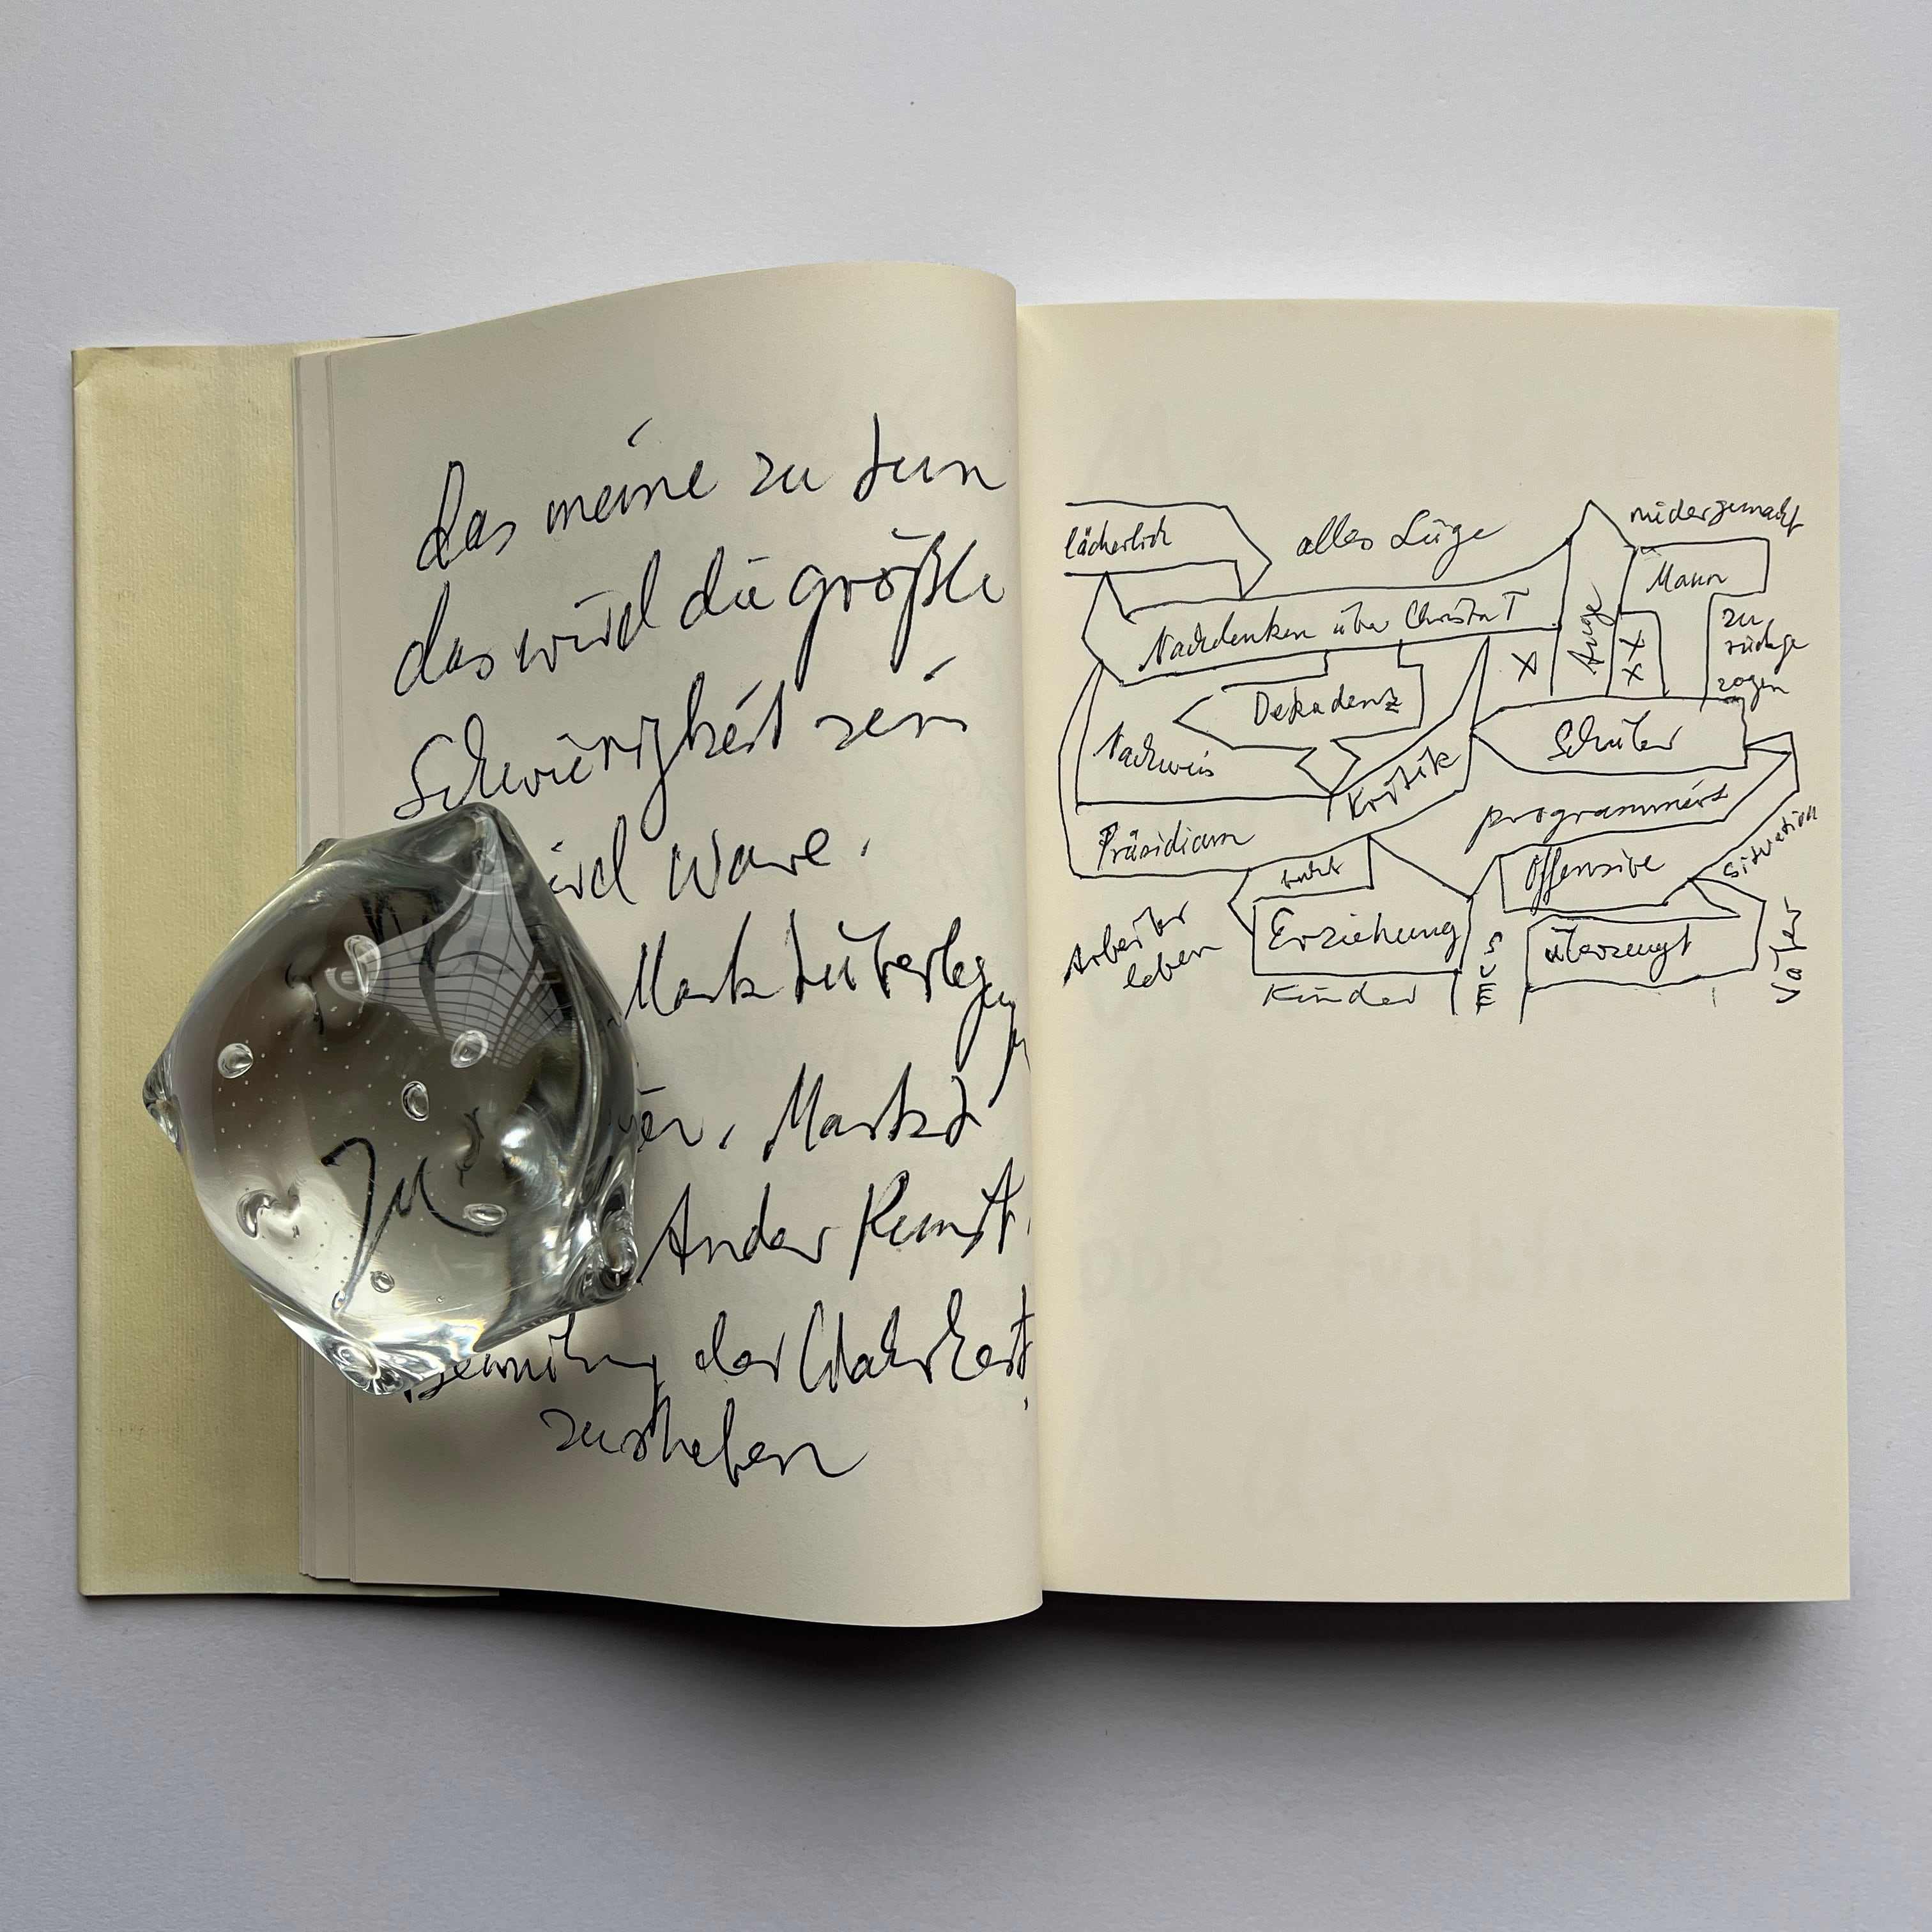 das meine zu tun
das wird die größte
Schwierigkeit sein
wird Ware.
Marktüberleg
Markt
An der Kunst
Bemühung der Wahrheit
zustreben
lächerlich
alles Lüge
niedergemacht
Mann
Nachdenken über Christa T
Angst
zu
rückge
zogen
X
X
X
Dekadenz
Schüler
Nachweis
Kritik
programmiert
Präsidium
Offensive
Situation
Arbeiter
leben
Erziehung
überzeugt
Kinder
EVE
Vater